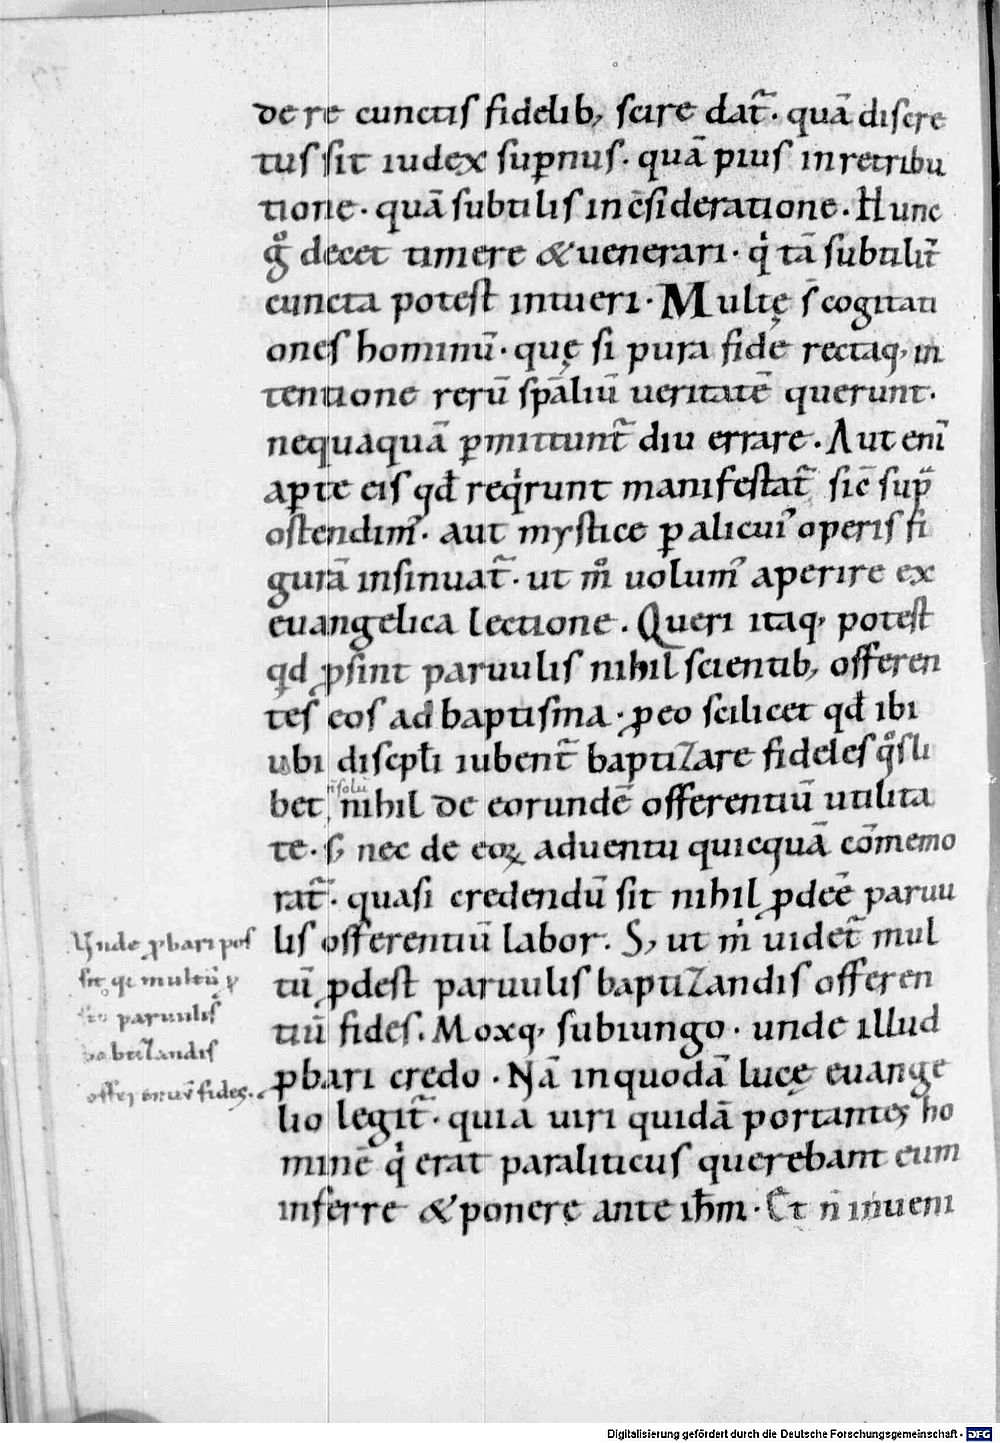 dere cunctis fidelib; scire dat̄. quā discre
tus sit iudex suꝑnus. quā pius in retribu
tione. quā subtilis in c̄sideratione. Hunc
gͦ decet timere & uenerari. qͥ tā subtilit̄
cuncta potest intueri. Multę s̄ cogitati
ones hominū. quę si pura fide rectaq; in
tentione rerū sp̄aliū ueritatē querunt.
nequaquā ꝑmittunt̄ diu errare. Aut enī
aꝑte eis qđ reqͥrunt manifestat̄ sic̄ sup̄
ostendim᾿. aut mystice ꝑ alicui᾿ operis fi
gurā insinuat̄. ut mͦ uolum᾿ aperire ex
euangelica lectione. Queri itaq; potest
qd ꝓsint paruulis nihil scientib; offeren
tes eos ad baptisma. ꝓ eo scilicet qđ ibi
ubi discipłi iubent̄ baptizare fideles qͦsli
bet n̄ solū nihil de eorundē offerentiū utilita
te. s; nec de eoꝝ aduentu quicquā cōmemo
rat̄. quasi credendū sit nihil ꝓdeē paruu
lis offerentiū labor. S; ut mͥ uidet̄ mul
tū ꝓdest paruulis baptizandis offeren
tiū fides. Moxq; subiungo. unde illud
ꝓbari credo. Nā in quodā lucę euange
lio legit̄. quia uiri quidā portantes ho
minē qͥ erat paraliticus querebant eum
inferre & ponere ante ihm̄. Et n̄ inueni
Unde ꝓbari pos
sit qͥ multū ꝓ
sit paruulis
babtizandis
offerentiū fides.
Digitalisierung gefördert durch die Deutsche Forschungsgemeinschaft - DFG